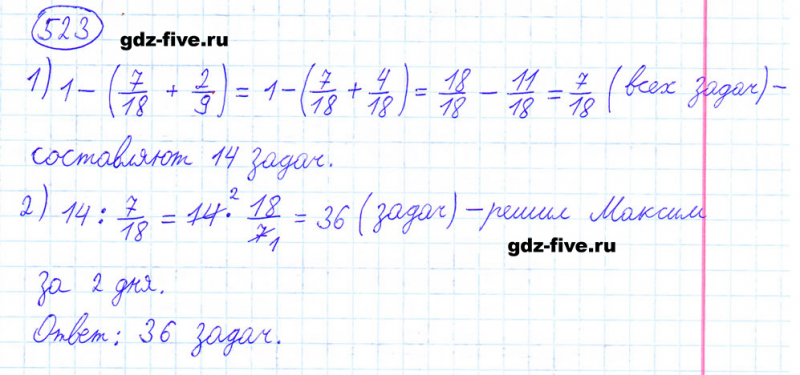 523
gdz-five.ru
1) 1 - (7/18 + 2/9) = 1 - (7/18 + 4/18) = 18/18 - 11/18 = 7/18 (всех задач) -
составляют 14 задач.
2) 14 : 7/18 = 14² · 18/7₁ = 36 (задач) - решил Максим
gdz-five.ru
за 2 дня.
Ответ: 36 задач.